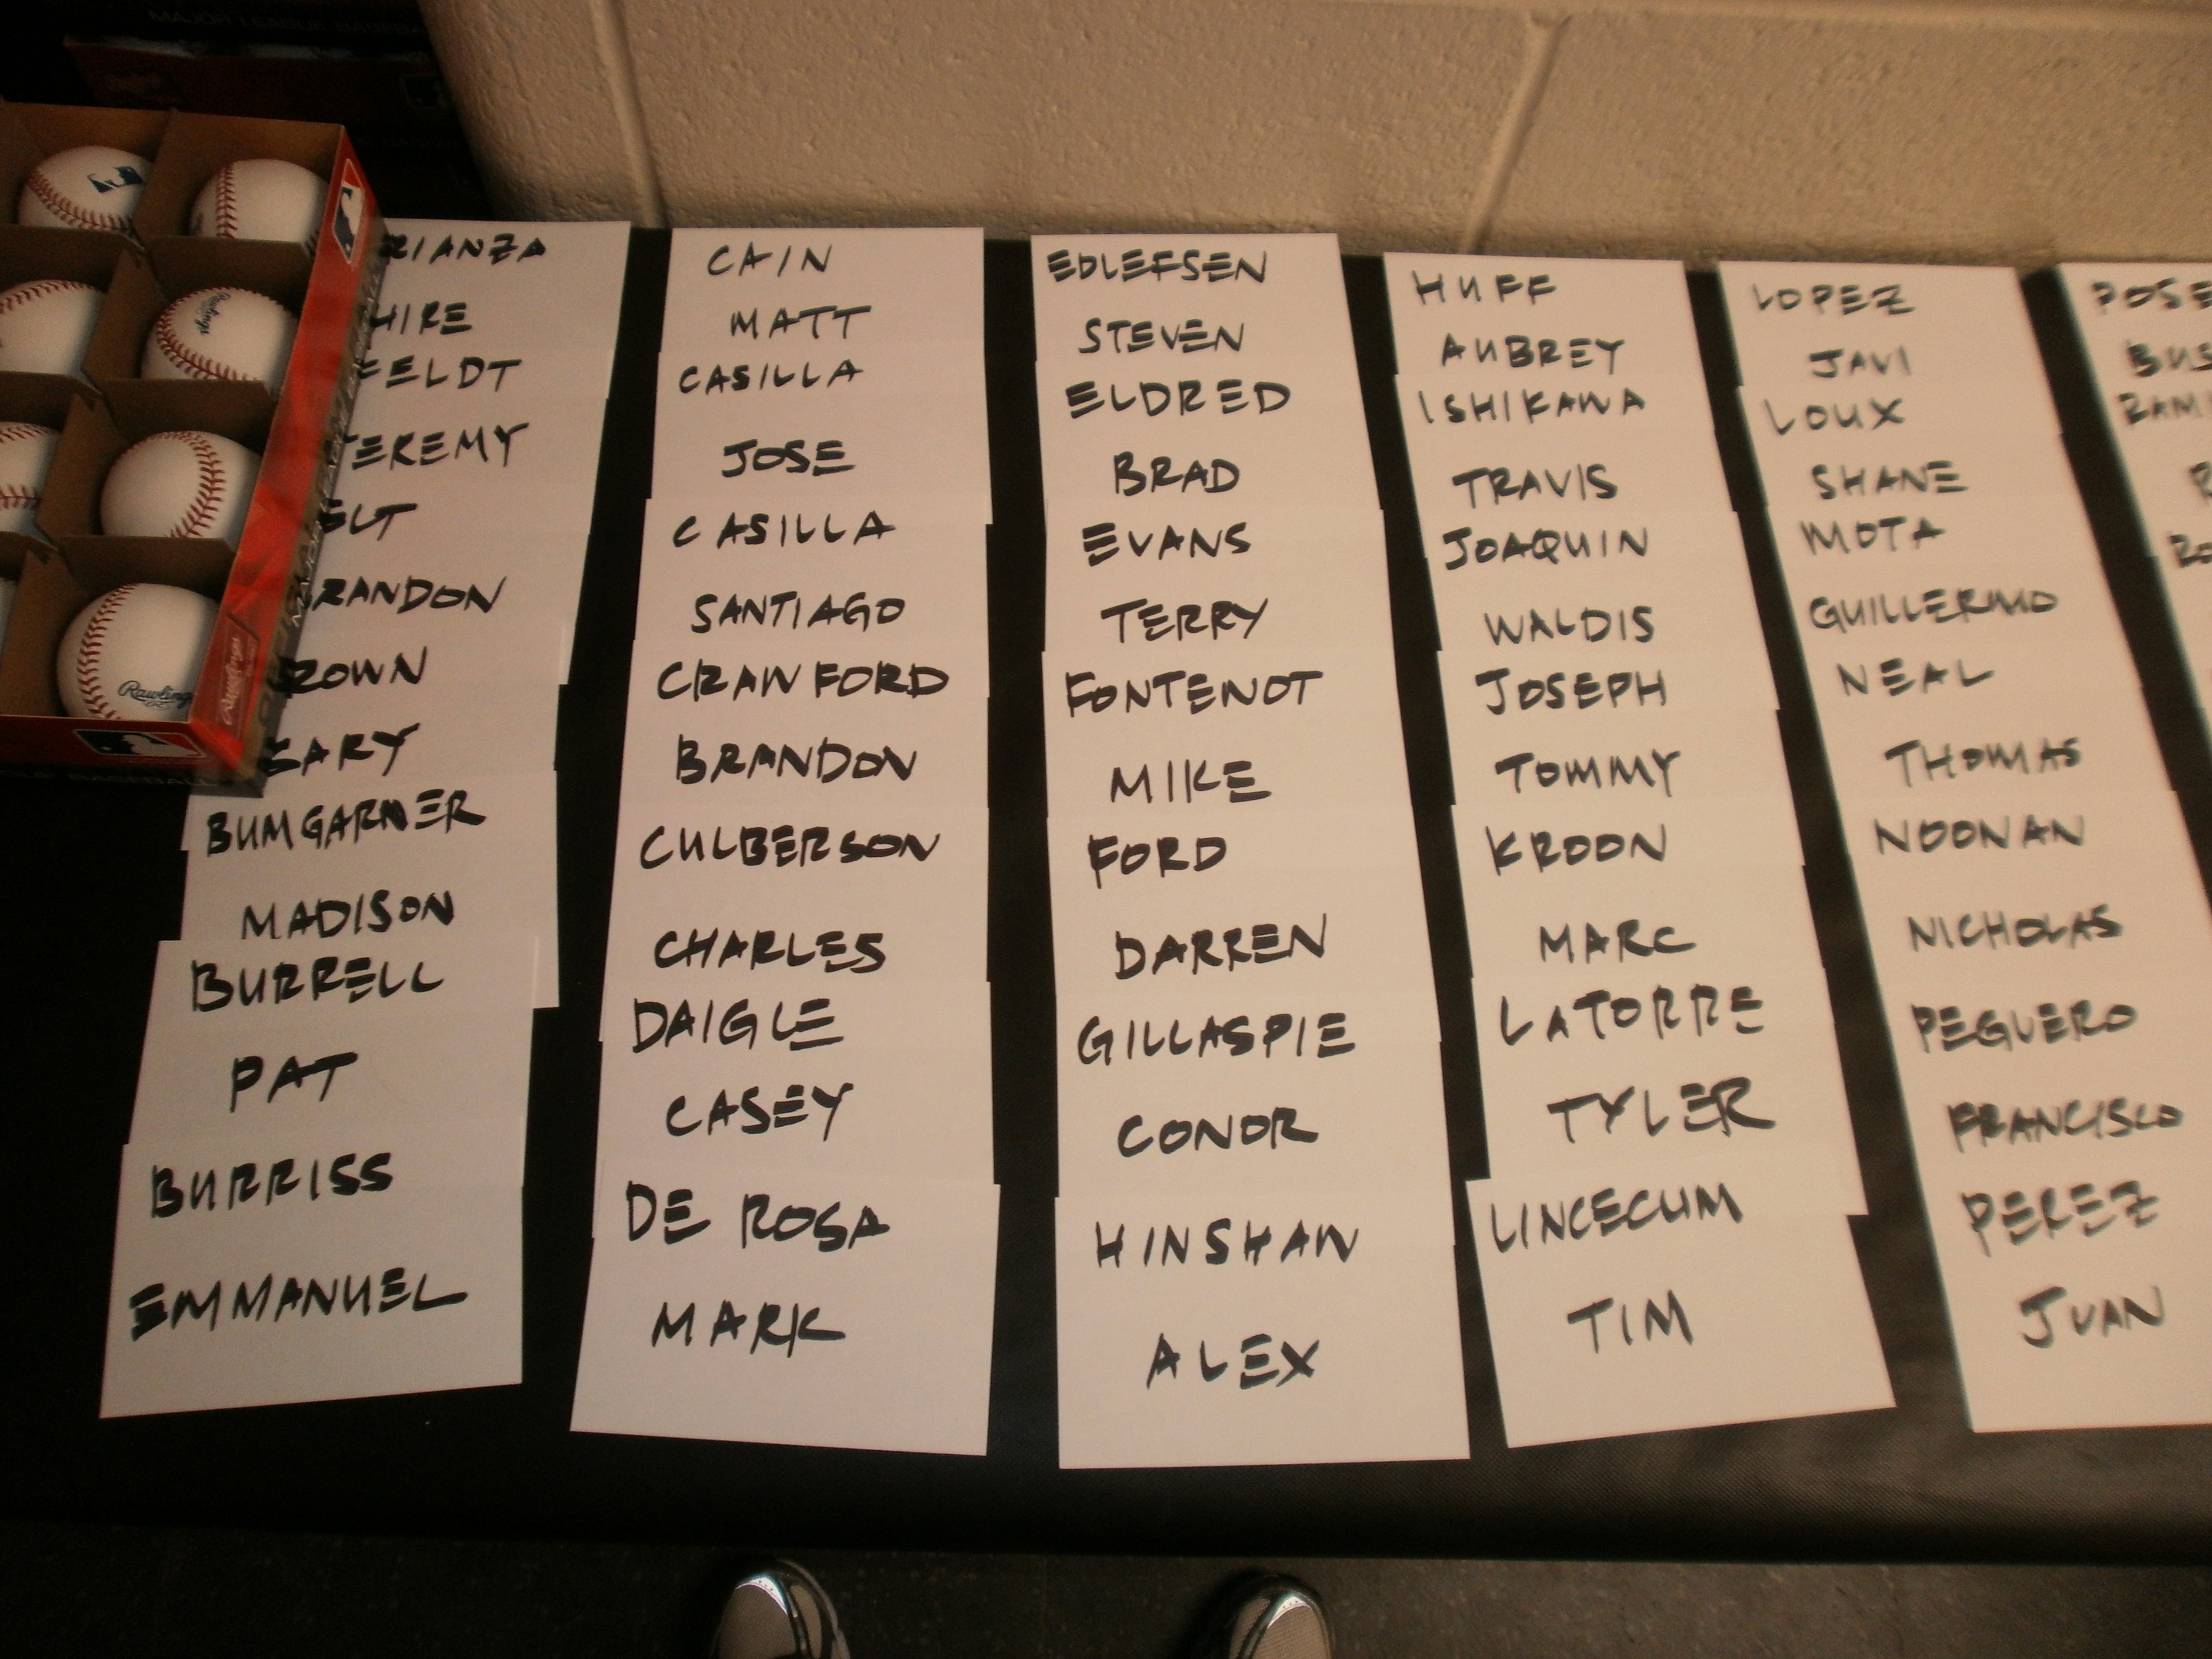 MAJOR LEAGUE BASEBA
Rawlings
Rawlings
Rawlings
RIANZA
HIRE
FELDT
JEREMY
ELT
BRANDON
ROWN
GARY
BUMGARNER
MADISON
BURRELL
PAT
BURRISS
EMMANUEL
CAIN
MATT
CASILLA
JOSE
CASILLA
SANTIAGO
CRAWFORD
BRANDON
CULBERSON
CHARLES
DAIGLE
CASEY
DE ROSA
MARK
EDLEFSEN
STEVEN
ELDRED
BRAD
EVANS
TERRY
FONTENOT
MIKE
FORD
DARREN
GILLASPIE
CONOR
HINSHAW
ALEX
HUFF
AUBREY
ISHIKAWA
TRAVIS
JOAQUIN
WALDIS
JOSEPH
TOMMY
KROON
MARC
LATORRE
TYLER
LINCECUM
TIM
LOPEZ
JAVI
LOUX
SHANE
MOTA
GUILLERMO
NEAL
THOMAS
NOONAN
NICHOLAS
PEGUERO
FRANCISCO
PEREZ
JUAN
POSE
BUS
RAMI
R
RO